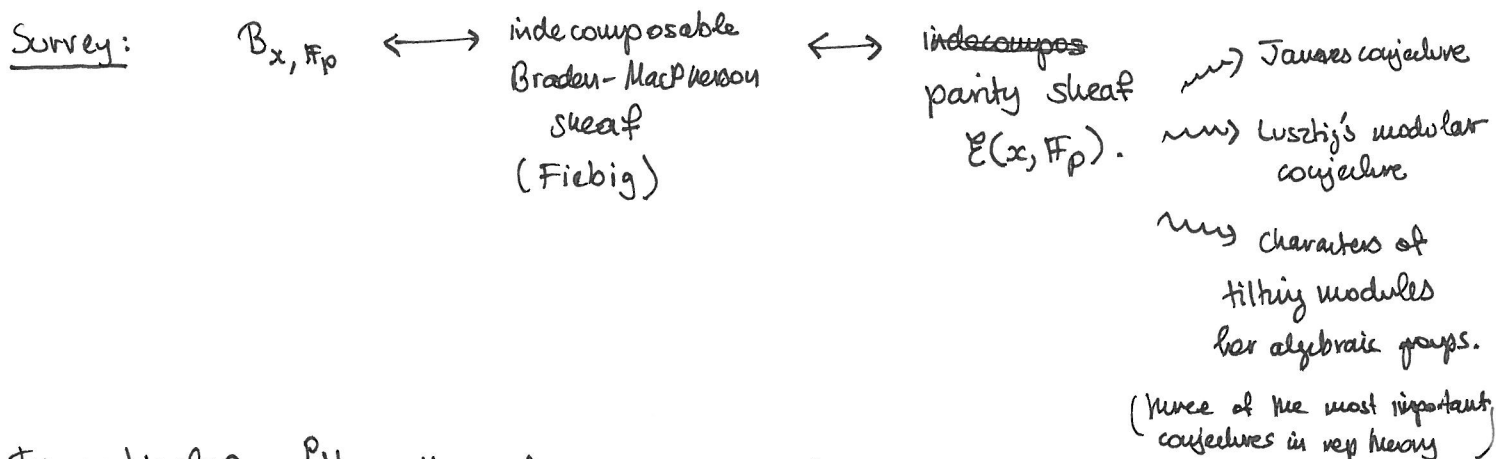 Survey: B_{x, 𝔽_p} ⟷ indecomposable Braden-MacPherson sheaf (Fiebig) ⟷ ~~indecompos~~ parity sheaf ℰ(x, 𝔽_p).
⇝ James conjecture
⇝ Lusztig's modular
conjecture
⇝ characters of
tilting modules
for algebraic groups.
(three of the most important
conjectures in rep theory)